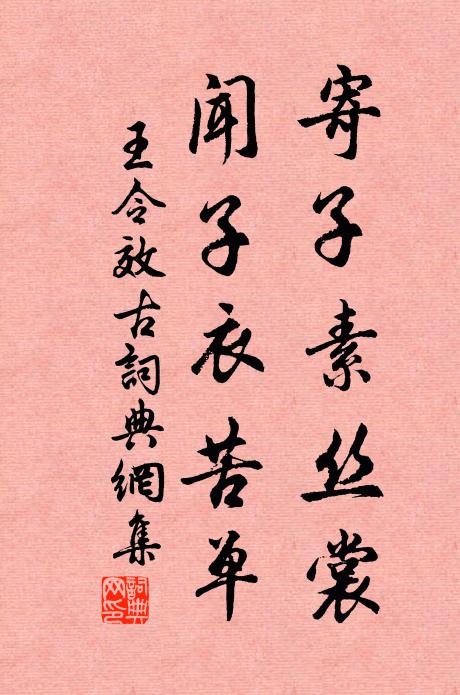 寄子素丝裳
闻子衣苦单
王令效古詞典網集
詞典網印